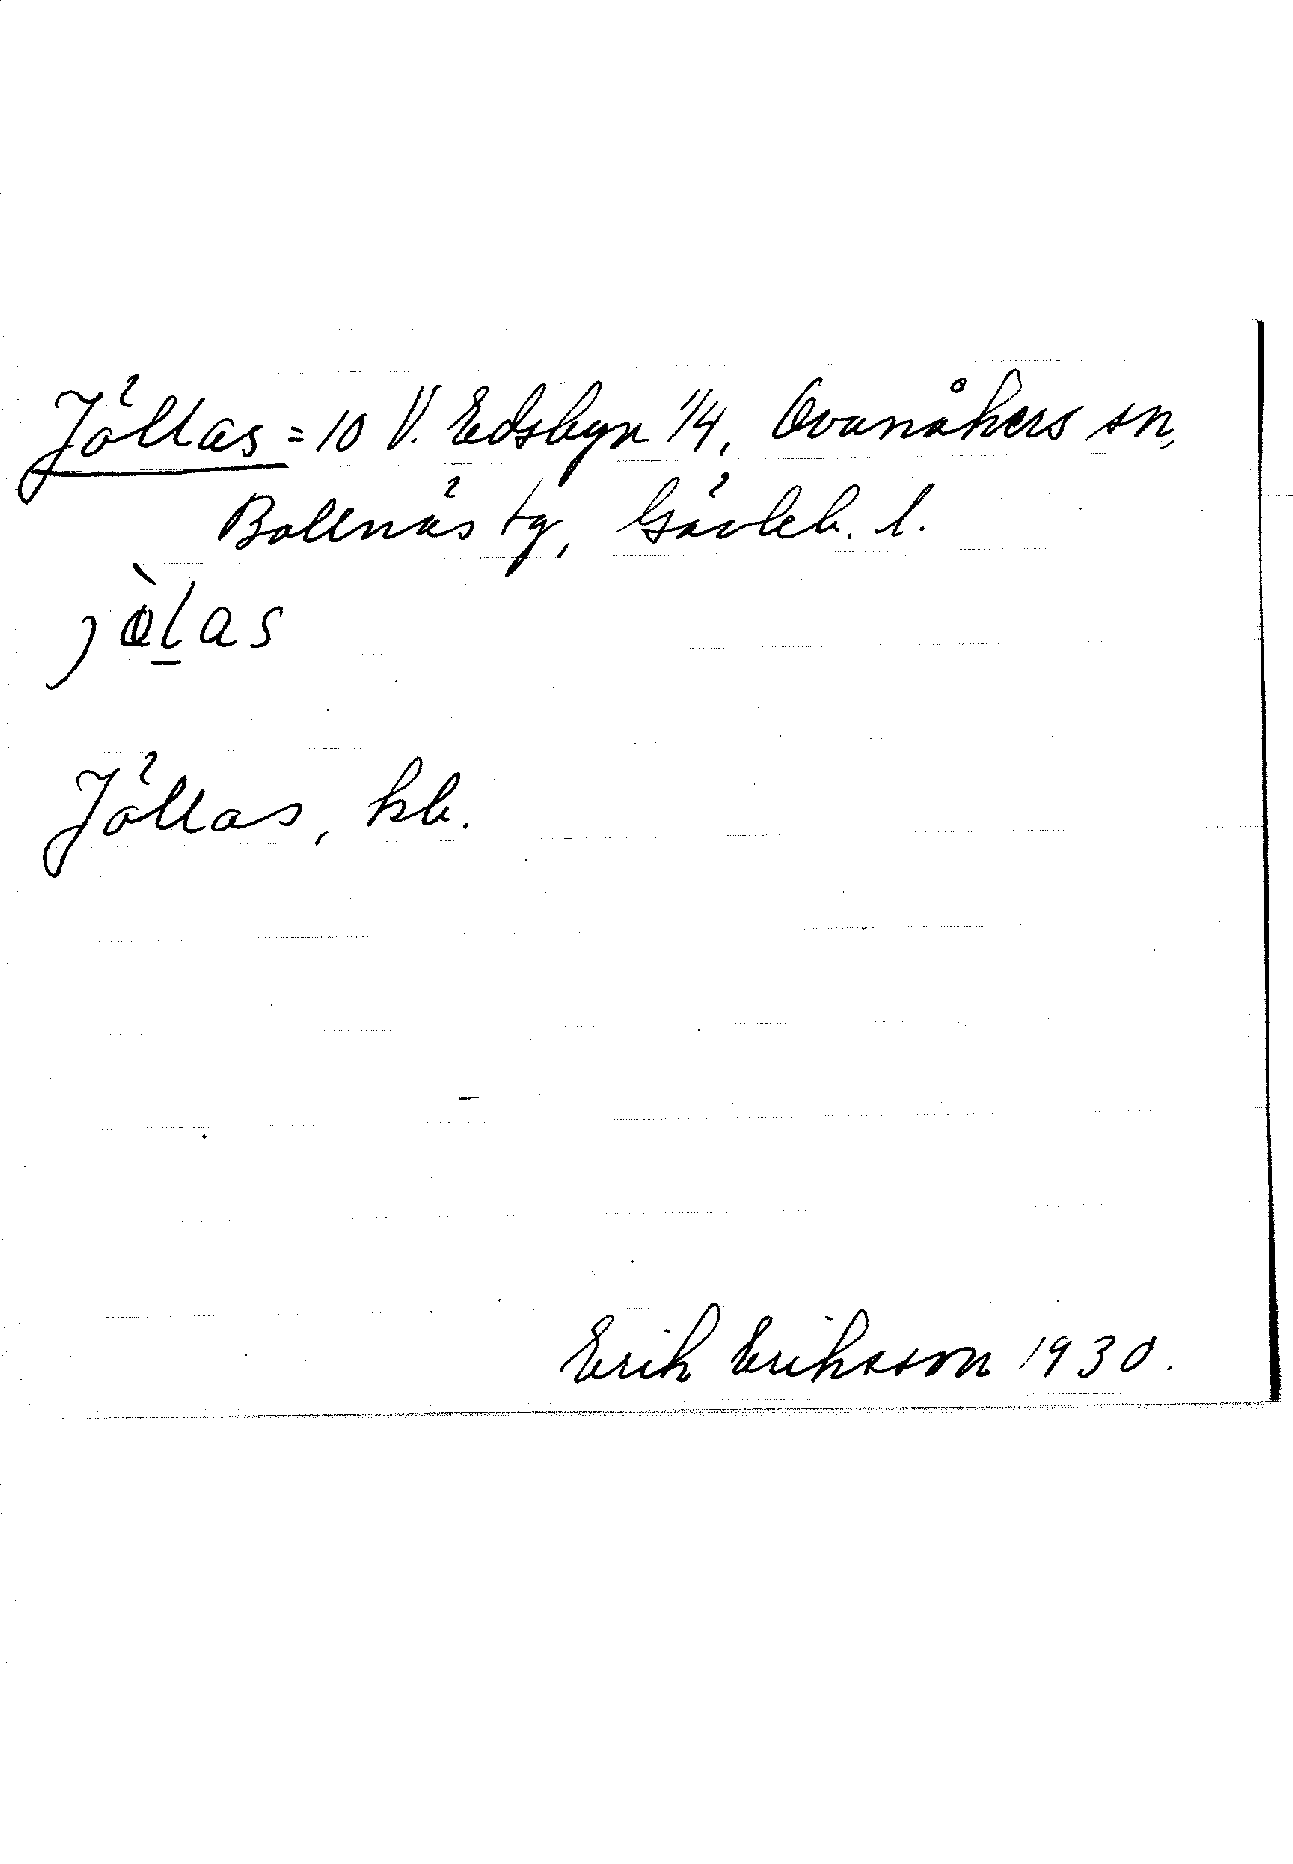 Jöllas = 10 V. Edsbyn 1/4, Ovanåkers sn,
Bollnäs tg, Gävleb. l.
jòl̲as
Jöllas, kb.
Erik Eriksson 1930.